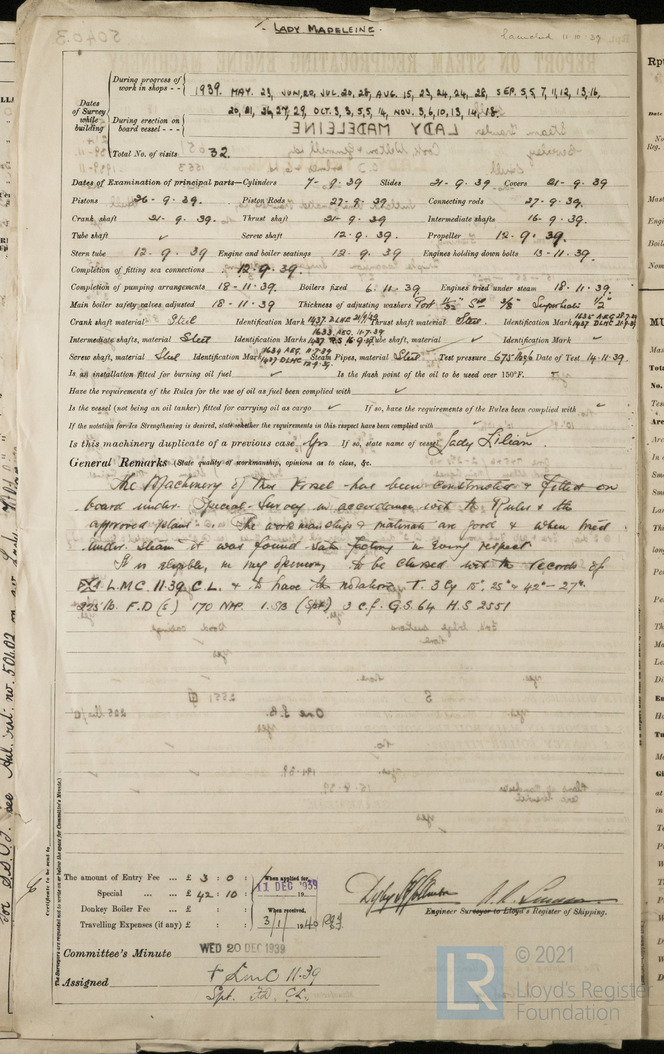 LADY MADELEINE.
Launched 11-10-39
Dates of Survey while building
During progress of work in shops - - 1939. MAY. 23, JUN, 20, JUL. 20, 28, AUG. 15, 23, 24, 24, 28, SEP. 5, 5, 7, 11, 12, 13, 16,
20, 21, 26, 27, 29, OCT. 3, 3, 5, 5, 14, NOV. 3, 6, 10, 13, 14, 18.
During erection on board vessel - - -
LADY MADELEINE
Total No. of visits 32.
Dates of Examination of principal parts—Cylinders 7-9-39 Slides 21-9-39 Covers 21-9-39
Pistons 26-9-39. Piston Rods 27-9-39. Connecting rods 27-9-39.
Crank shaft 21-9-39. Thrust shaft 21-9-39. Intermediate shafts 16-9-39.
Tube shaft ✓ Screw shaft 12-9-39. Propeller 12-9-39.
Stern tube 12-9-39. Engine and boiler seatings 12-9-39. Engines holding down bolts 13-11-39.
Completion of fitting sea connections 12-9-39.
Completion of pumping arrangements 18-11-39. Boilers fixed 6-11-39. Engines tried under steam 18-11-39.
Main boiler safety valves adjusted 18-11-39 Thickness of adjusting washers Port 11/32" Std 3/8" Superheater 1/2"
Crank shaft material Steel Identification Mark 1437 DLHC 21/9/39 Thrust shaft material Steel. Identification Mark 1437 DLHC 21-9-39
Intermediate shafts, material Steel Identification Marks 1633. AEG. 11-7-39 Tube shaft, material ✓ Identification Mark ✓
Screw shaft, material Steel Identification Mark 1634 AEG. 11-7-39 1437 DLHC 12-9-39. Steam Pipes, material Steel Test pressure 675 lbs Date of Test 14-11-39.
Is an installation fitted for burning oil fuel ✓ Is the flash point of the oil to be used over 150°F.
Have the requirements of the Rules for the use of oil as fuel been complied with ✓
Is the vessel (not being an oil tanker) fitted for carrying oil as cargo ✓ If so, have the requirements of the Rules been complied with ✓
If the notation for Ice Strengthening is desired, state whether the requirements in this respect have been complied with ✓
Is this machinery duplicate of a previous case Yes If so, state name of vessel Lady Lilian
General Remarks (State quality of workmanship, opinions as to class, &c.
The Machinery of this Vessel has been constructed & fitted on
board under Special Survey in accordance with the Rules & the
approved plans. The workmanship & materials are good & when tried
under steam it was found satisfactory in every respect.
It is eligible, in my opinion, to be classed with the records of
L.M.C. 11.39. C.L. & to have the notations T. 3 Cy 15", 25" & 42" - 27".
F.D 170 NHP. 1.SB (Spt) 3 c.f. G.S. 64 H.S 2551
The amount of Entry Fee ... £ 3 : 0 :
Special ... £ 42 : 10 :
Donkey Boiler Fee ... £ : :
Travelling Expenses (if any) £ : :
When applied for, 11 DEC 1939
When received, 3/1/1940
Engineer Surveyor to Lloyd's Register of Shipping.
Committee's Minute WED 20 DEC 1939
Assigned + LMC 11-39
Spt. FD CL.
Certificate to be sent to
The Surveyors are requested not to write on or below the space for Committee's Minute.
© 2021
LR Lloyd's Register
Foundation